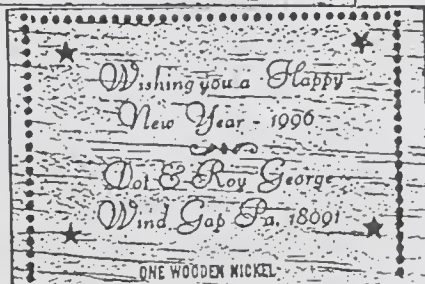 Wishing you a Happy
New Year - 1996
Dot & Roy George
Wind Gap Pa. 18091
ONE WOODEN NICKEL